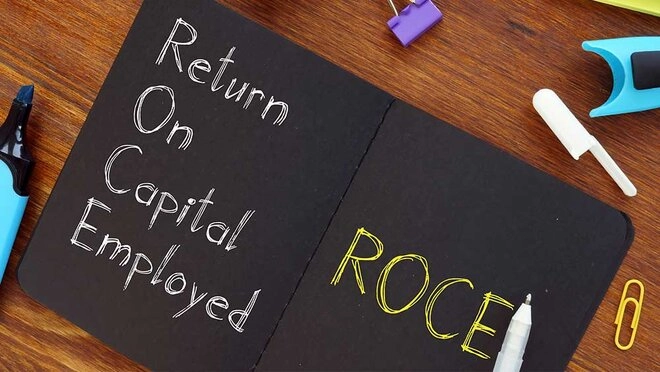 Return
On
Capital
Employed
ROCE